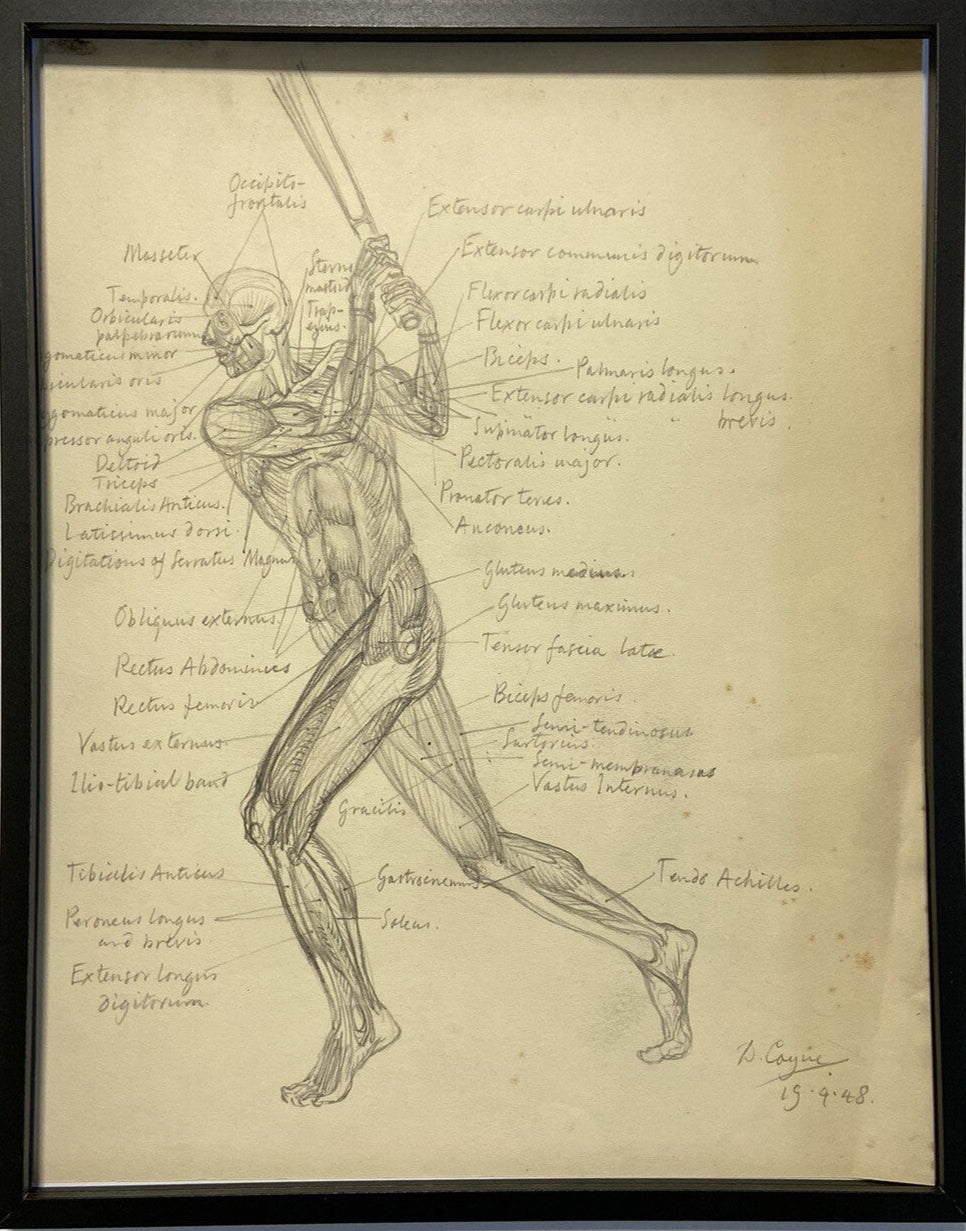 Occipito-
frontalis
Masseter
Temporalis.
Orbicularis
palpebrarum
gomaticus minor
icularis oris
ygomaticus major
pressor anguli oris.
Deltoid
Triceps
Brachialis Anticus.
Latissimus dorsi.
Digitations of Serratus Magnus
Obliquus externus.
Rectus Abdominis
Rectus femoris
Vastus externus.
Ilio-tibial band
Gracilis
Tibialis Anticus
Peroneus longus
and brevis.
Extensor longus
digitorum.
Sterno
mastoid
Trap-
ezius.
Extensor carpi ulnaris
Extensor communis digitorum
Flexor carpi radialis
Flexor carpi ulnaris
Biceps.
Palmaris longus.
Extensor carpi radialis longus.
" " brevis.
Supinator longus.
Pectoralis major.
Pronator teres.
Anconeus.
Gluteus medius.
Gluteus maximus.
Tensor fascia latæ.
Biceps femoris.
Semi-tendinosus
Sartorius.
Semi-membranasus
Vastus Internus.
Gastrocnemius
Soleus.
Tendo Achilles.
D. Coyne
19.4.48.